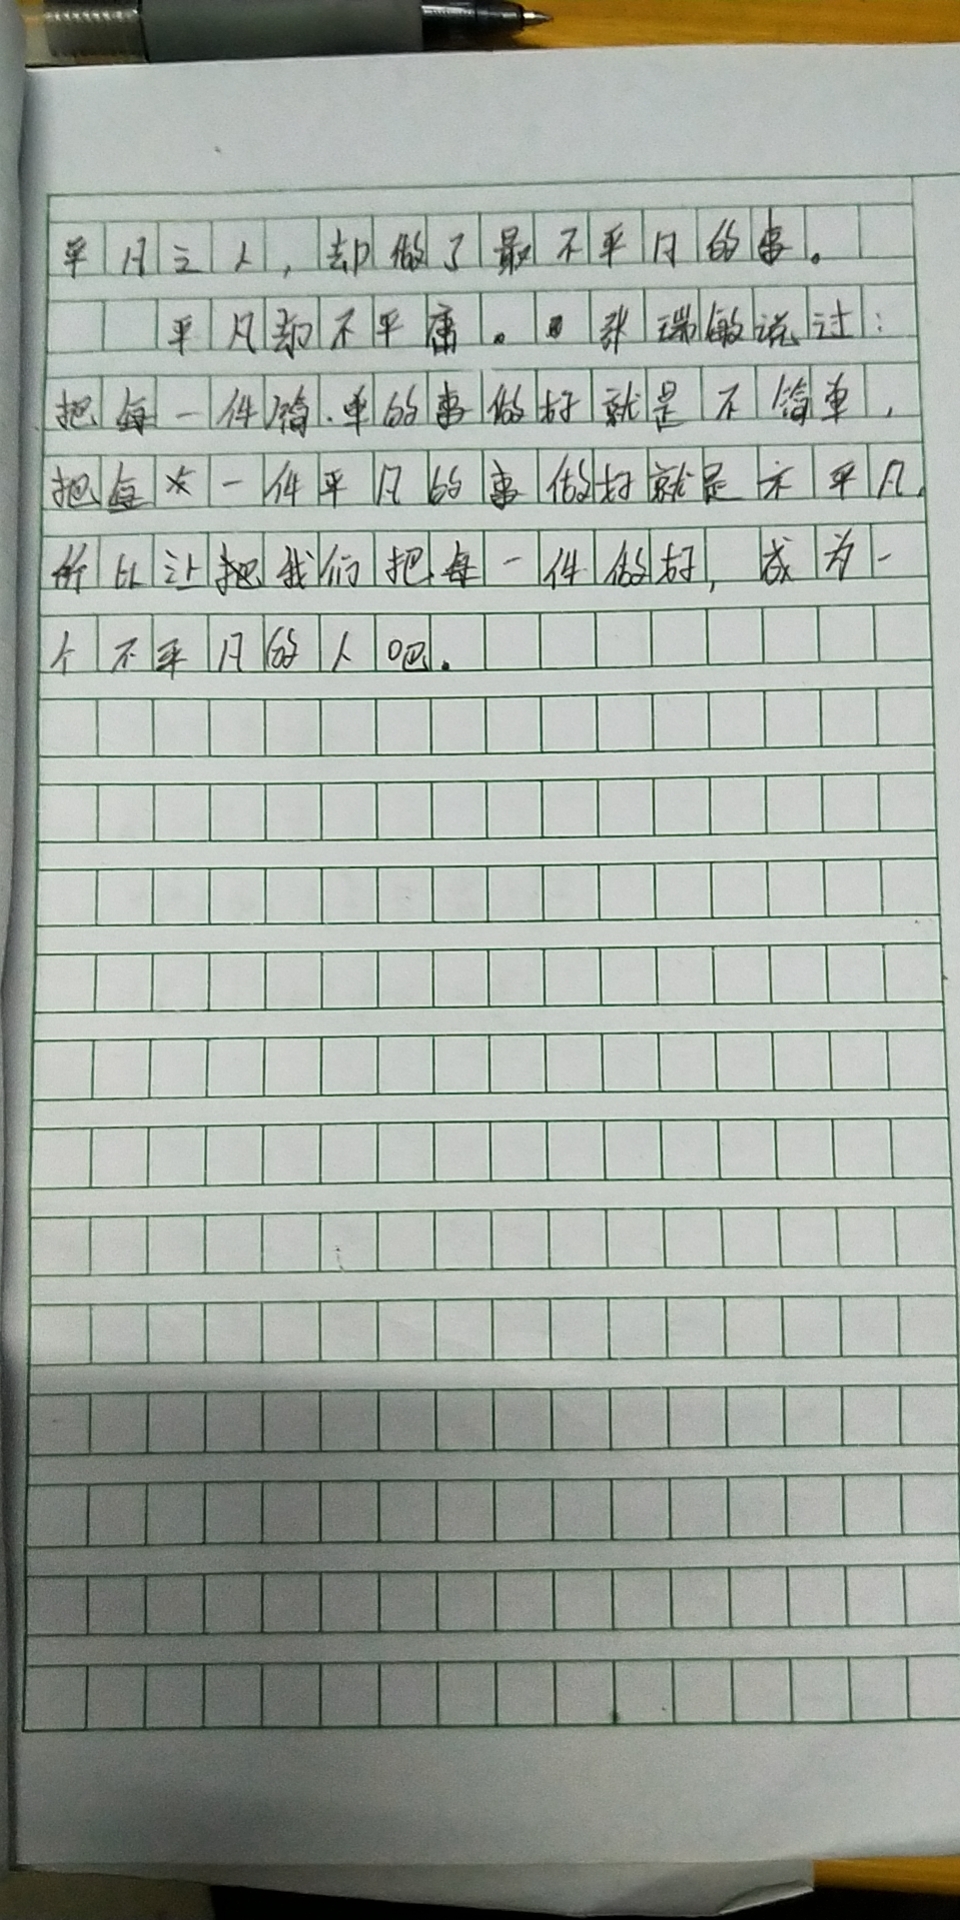 平凡之人，却做了最不平凡的事。
平凡却不平庸。张瑞敏说过：
把每一件简单的事做好就是不简单，
把每一件平凡的事做好就是不平凡，
所以让把我们把每一件做好，成为一
个不平凡的人吧。